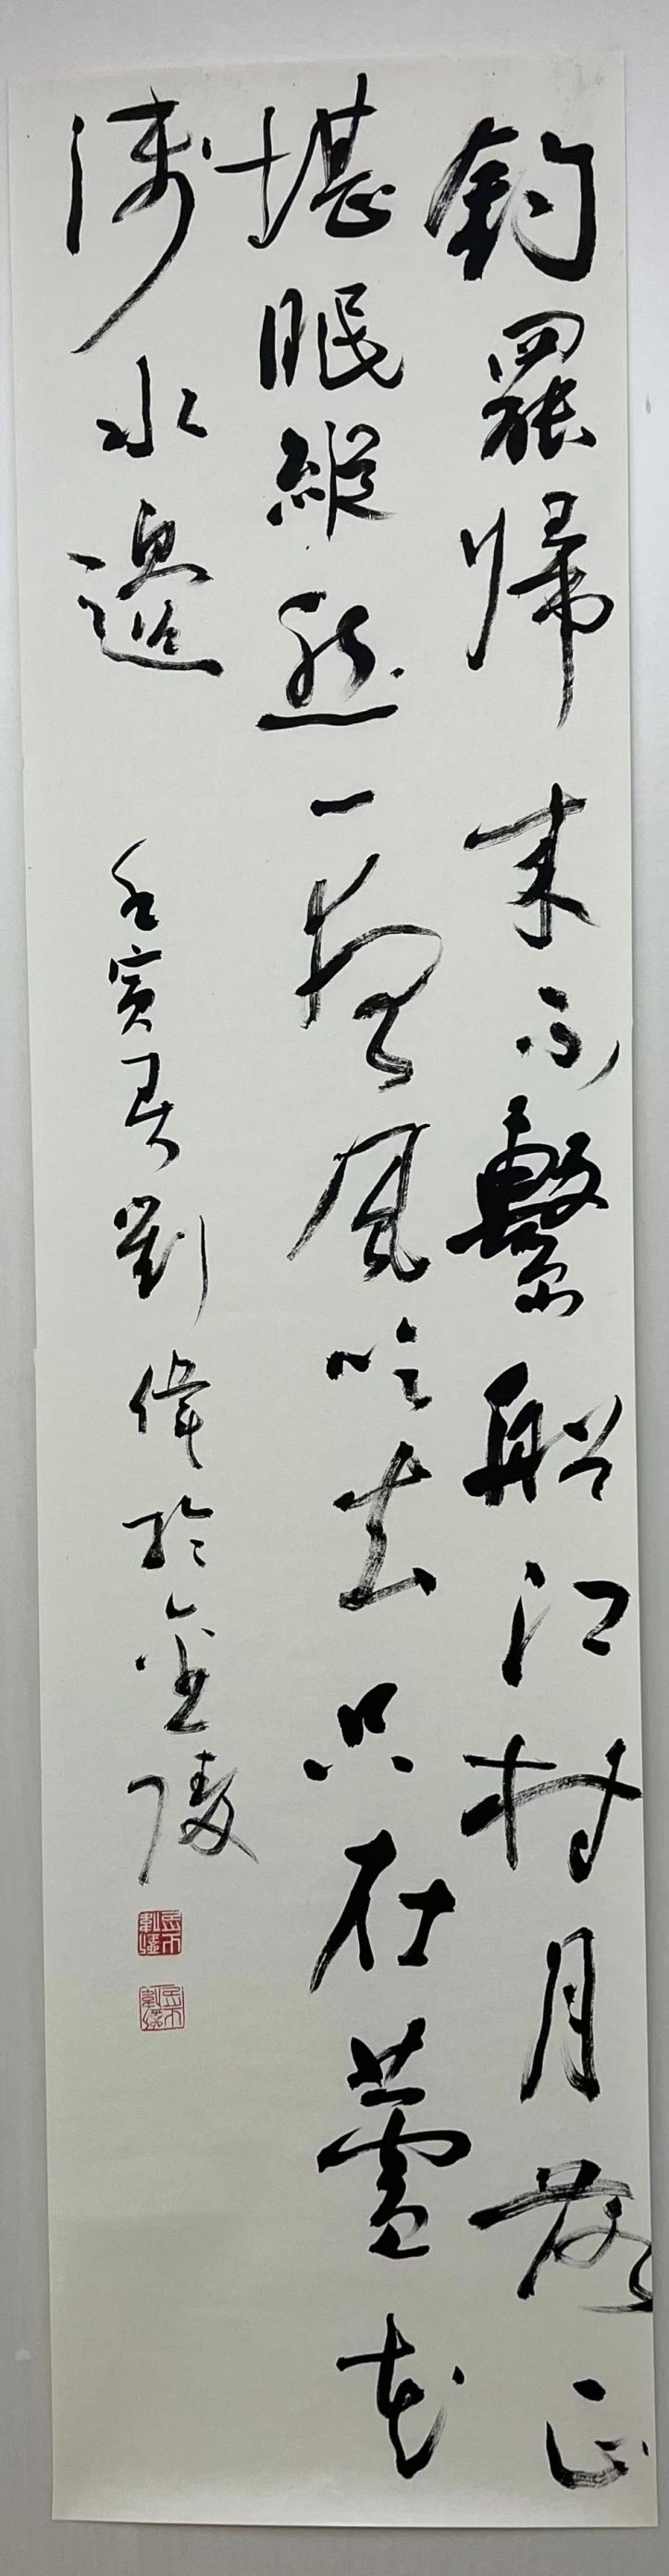 釣罷歸來不繫船江村月落正
堪眠縱然一夜風吹去只在蘆花
淺水邊
壬寅春劉偉於金陵